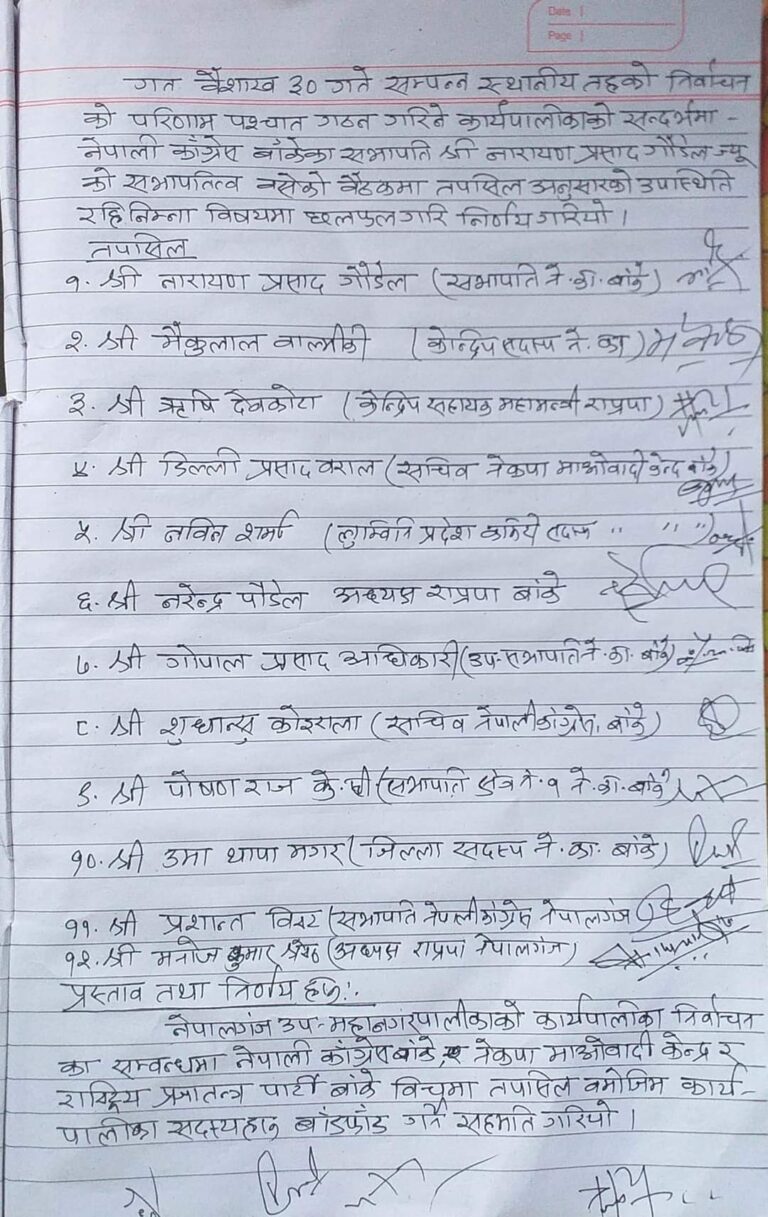 Date
Page
गत वैशाख ३० गते सम्पन्न स्थानीय तहको निर्वाचन
को परिणाम पश्चात गठन गरिने कार्यपालीकाको सन्दर्भमा -
नेपाली काँग्रेस बाँकेका सभापति श्री नारायण प्रसाद गौडेल ज्यू
को सभापतित्व बसेको बैठकमा तपसिल अनुसारको उपास्थिति
रहि निम्न विषयमा छलफल गरि निर्णय गरियो ।
तपसिल
१. श्री नारायण प्रसाद गौडेल (सभापति ने.काँ. बाँके)
२. श्री मैकुलाल वाल्मीकी (केन्द्रिय सदस्य ने. का)
३. श्री ऋषि देवकोटा (केन्द्रिय सहायक महामन्त्री राप्रपा)
४. श्री डिल्ली प्रसाद वराल (सचिव नेकपा माओवादी केन्द्र बाँके)
५. श्री नविन शर्मा (लुम्विनि प्रदेश सदस्य " " ")
६. श्री नरेन्द्र पौडेल अध्यक्ष राप्रपा बाँके
७. श्री गोपाल प्रसाद अधिकारी (उप-सभापति ने.का. बाँके)
८. श्री शुधान्सु कोइराला (सचिव नेपाली काँग्रेस, बाँके)
९. श्री पोषण राज के.सी (सभापति क्षेत्र नं. १ ने.काँ. बाँके)
१०. श्री उमा थापा मगर (जिल्ला सदस्य ने.का. बाँके)
११. श्री प्रशान्त विस्ट (सभापति नेपाली काँग्रेस नेपालगंज)
१२. श्री मनोज कुमार श्रेष्ठ (अध्यक्ष राप्रपा नेपालगंज)
प्रस्ताव तथा निर्णय हरु:.
नेपालगंज उप-महानगरपालीकाको कार्यपालीका निर्वाचन
का सम्वन्धमा नेपाली काँग्रेस बाँके, नेकपा माओवादी केन्द्र र
राष्ट्रिय प्रजातन्त्र पार्टी बाँके विचमा तपासिल वमोजिम कार्य-
पालीका सदस्यहरु बाँडफाँड गर्ने सहमति गरियो ।